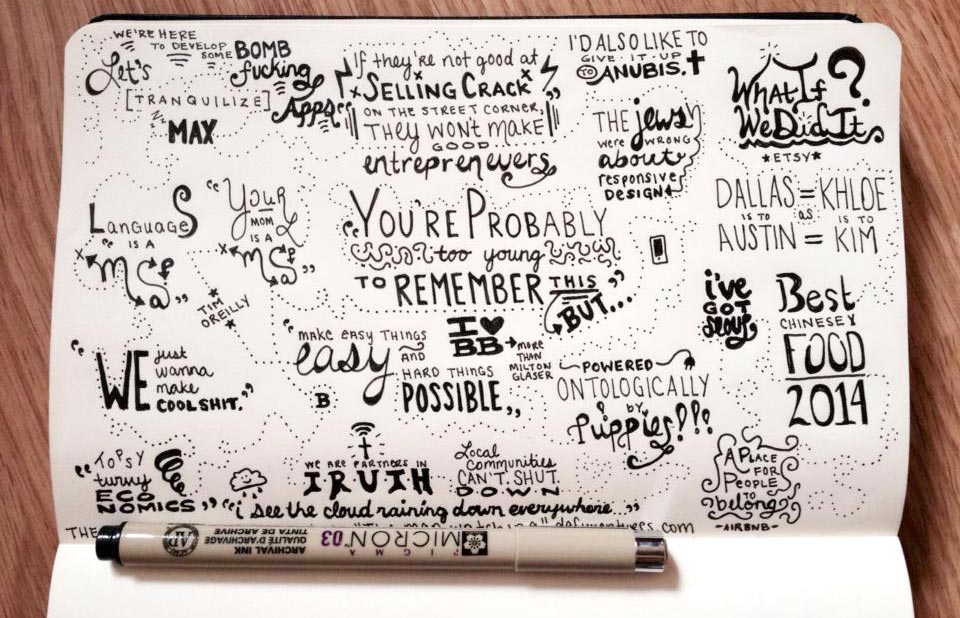 WE'RE HERE
TO DEVELOP
SOME BOMB
Let's fucking
[TRANQUILIZE] Apps"
zzz
MAX
"If they're not good at
SELLING CRACK
ON THE STREET CORNER,
THEY WON'T MAKE
GOOD
entrepreneuers"
I'D ALSO LIKE TO
GIVE IT UP
TO ANUBIS.
THE jews
were WRONG
about
responsive
DESIGN
What If
We Did It?
*ETSY*
LANGUAGES
IS A
"MCFa"
"Your
MOM
IS A
MCFa"
*TIM
OREILLY*
"YOU'RE PROBABLY
too young
TO REMEMBER THIS"
BUT...
DALLAS = KHLOE
IS TO as IS TO
AUSTIN = KIM
i've
GOT
Seoul
Best
CHINESEY
FOOD
2014
"WE just
wanna
make
COOL SHIT."
"MAKE EASY THINGS
easy AND
HARD THINGS
POSSIBLE,,
B
I ♥
BB
MORE
THAN
MILTON
GLASER
POWERED
ONTOLOGICALLY
by
Puppies!!!
"TOPSY
turvy
ECO
NOMICS"
WE ARE PARTNERS IN
TRUTH
Local
communities
CAN'T SHUT
DOWN
"i see the cloud raining down everywhere..."
A PLACE
FOR
PEOPLE
TO
belong
-AIRBNB-
THE
.com
ARCHIVAL INK
QUALITÉ D'ARCHIVAGE
TINTA DE ARCHIVE
PIGMA
MICRON 03